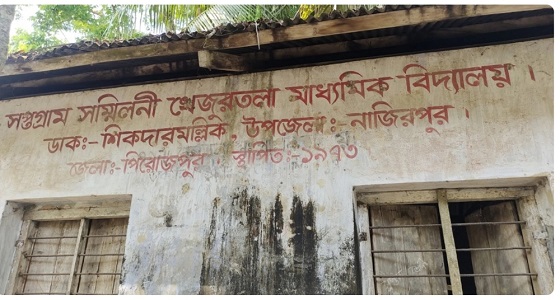 সপ্তগ্রাম সম্মিলনী খেজুরতলা মাধ্যমিক বিদ্যালয় ।
ডাক:- শিকদারমল্লিক, উপজেলা:- নাজিরপুর ।
জেলা:- পিরোজপুর । স্থাপিত:- ১৯৭৩